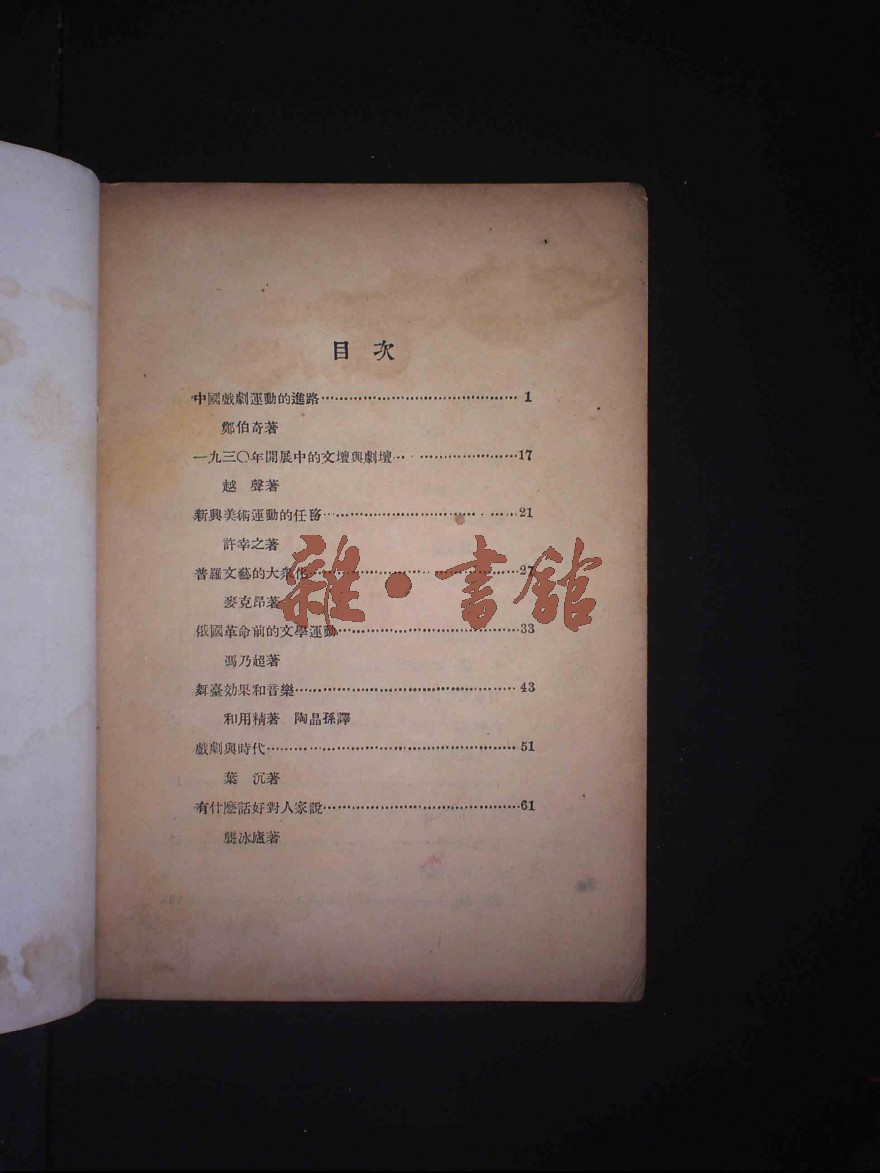 目次
中國戲劇運動的進路……………………………………1
鄭伯奇著
一九三〇年開展中的文壇與劇壇……………………17
越 聲著
新興美術運動的任務……………………………………21
許幸之著
普羅文藝的大衆化……………………………………27
麥克昂著
俄國革命前的文學運動…………………………………33
馮乃超著
舞臺効果和音樂…………………………………………43
和田精著 陶晶孫譯
戲劇與時代………………………………………………51
葉 沉著
有什麼話好對人家說……………………………………61
龔冰廬著
雜·書館